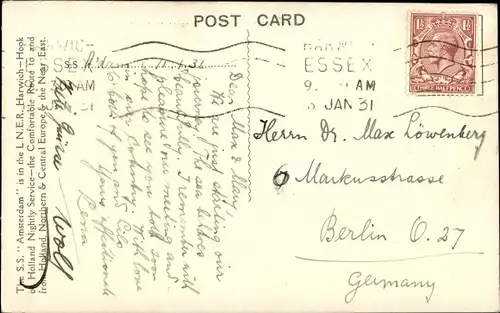 POST CARD
HARWICH
ESSEX
9. AM
JAN 31
THREE HALFPENCE
The S.S. "Amsterdam" is in the L.N.E.R. Harwich—Hook
of Holland Nightly Service—the Comfortable Route to and
from Holland, Northern & Central Europe, & the Near East.
S.S. A'dam 11.1.31
Dear Max & Mary,
We are just starting our
journey. The sea behaves
beautifully. I remember with
pleasure our meeting and
hope to see you both soon
in our
to both of you and
Yours affectionately
Lena
Wolf
Herrn Dr. Max Löwenberg
6 Markusstrasse
Berlin O. 27
Germany